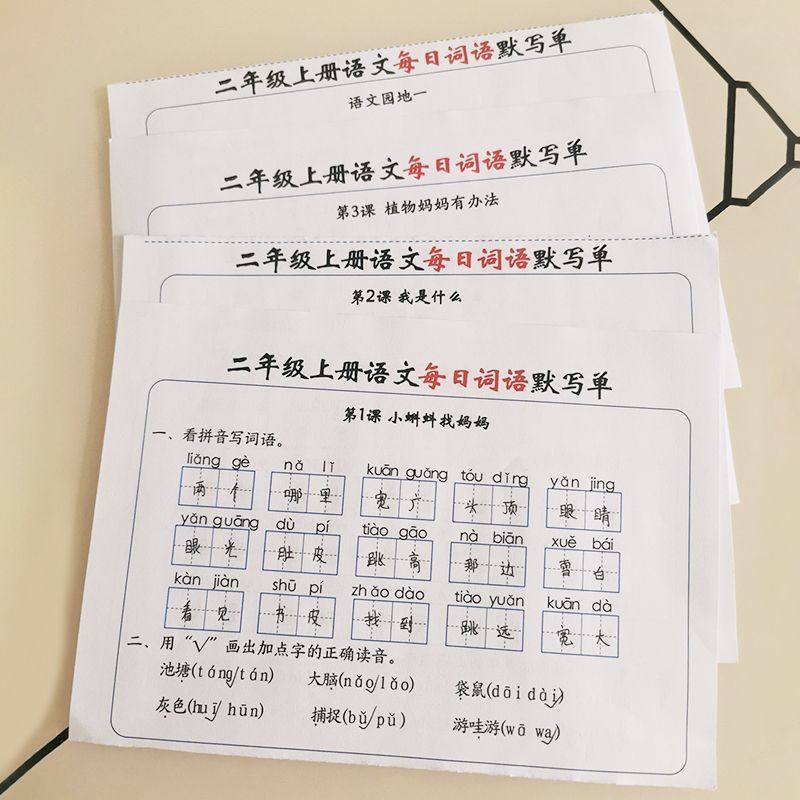 二年级上册语文每日词语默写单
语文园地一
二年级上册语文每日词语默写单
第3课 植物妈妈有办法
二年级上册语文每日词语默写单
第2课 我是什么
二年级上册语文每日词语默写单
第1课 小蝌蚪找妈妈
一、看拼音写词语。
liǎng gè nǎ lǐ kuān guǎng tóu dǐng yǎn jing
两个 哪里 宽广 头顶 眼睛
yǎn guāng dù pí tiào gāo nà biān xuě bái
眼光 肚皮 跳高 那边 雪白
kàn jiàn shū pí zhǎo dào tiào yuǎn kuān dà
看见 书皮 找到 跳远 宽大
二、用“√”画出加点字的正确读音。
池塘(táng/tán) 大脑(nǎo/lǎo) 袋鼠(dāi dài)
灰色(huī/ hūn) 捕捉(bǔ/pǔ) 游哇游(wā wa)